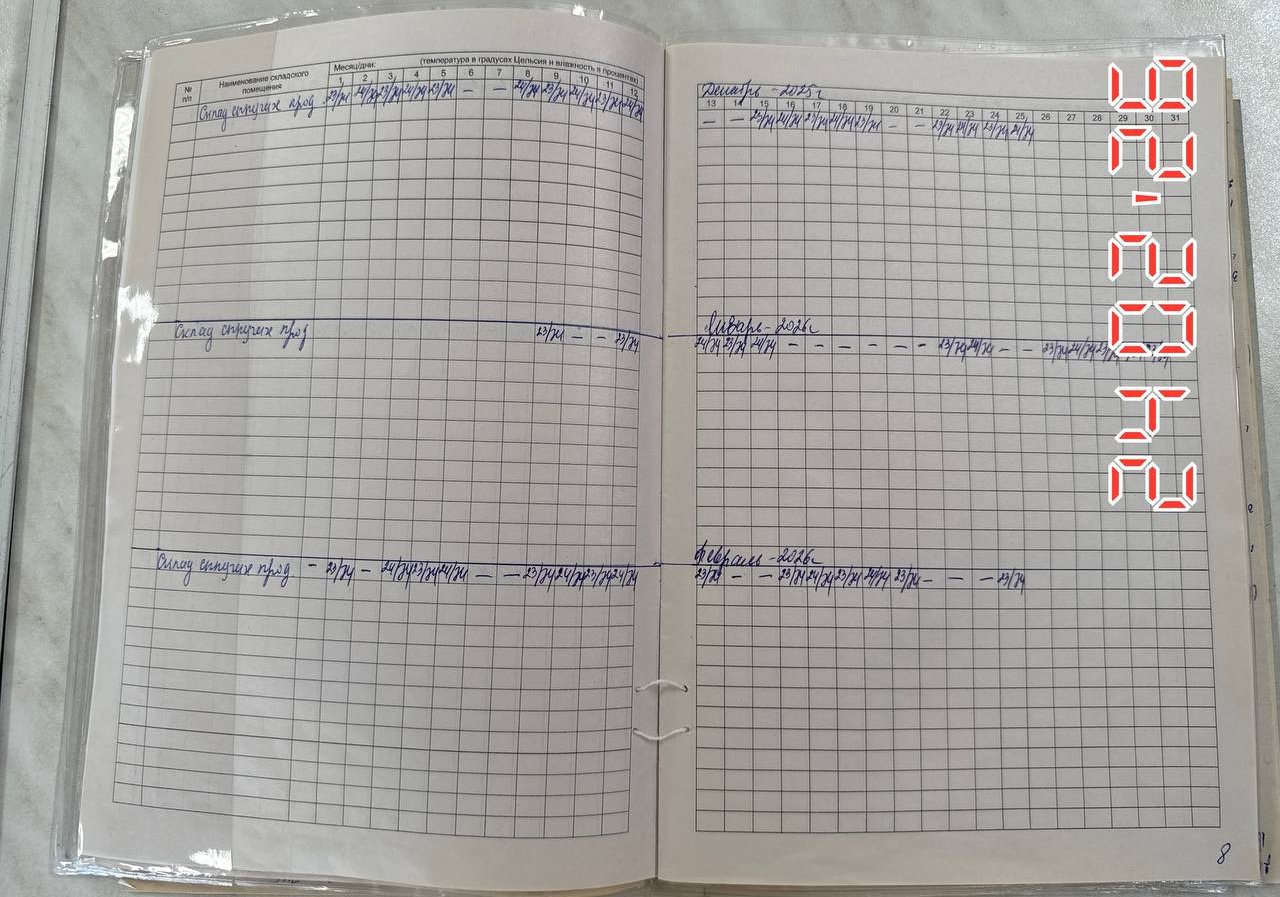 № п/п
Наименование складского помещения
Месяц/дни: (температура в градусах Цельсия и влажность в процентах)
1 2 3 4 5 6 7 8 9 10 11 12
Склад сыпучих прод 23/74 24/74 23/74 24/74 23/74 — — 24/74 23/74 24/74 23/74 24/74
Декабрь - 2025г
13 14 15 16 17 18 19 20 21 22 23 24 25 26 27 28 29 30 31
— — 23/74 24/74 23/74 24/74 23/74 — — 23/74 24/74 23/74 24/74
Склад сыпучих прод 23/74 — — 23/74
Январь - 2026г
24/74 23/74 24/74 - - - - - - 23/74 24/74 - - 23/74 24/74 23/74
Склад сыпучих прод. - 23/74 - 24/74 23/74 24/74 — — 23/74 24/74 23/74 24/74
Февраль - 2026г
23/74 - - 23/74 24/74 23/74 24/74 23/74 - - - 23/74
8
24.02.26